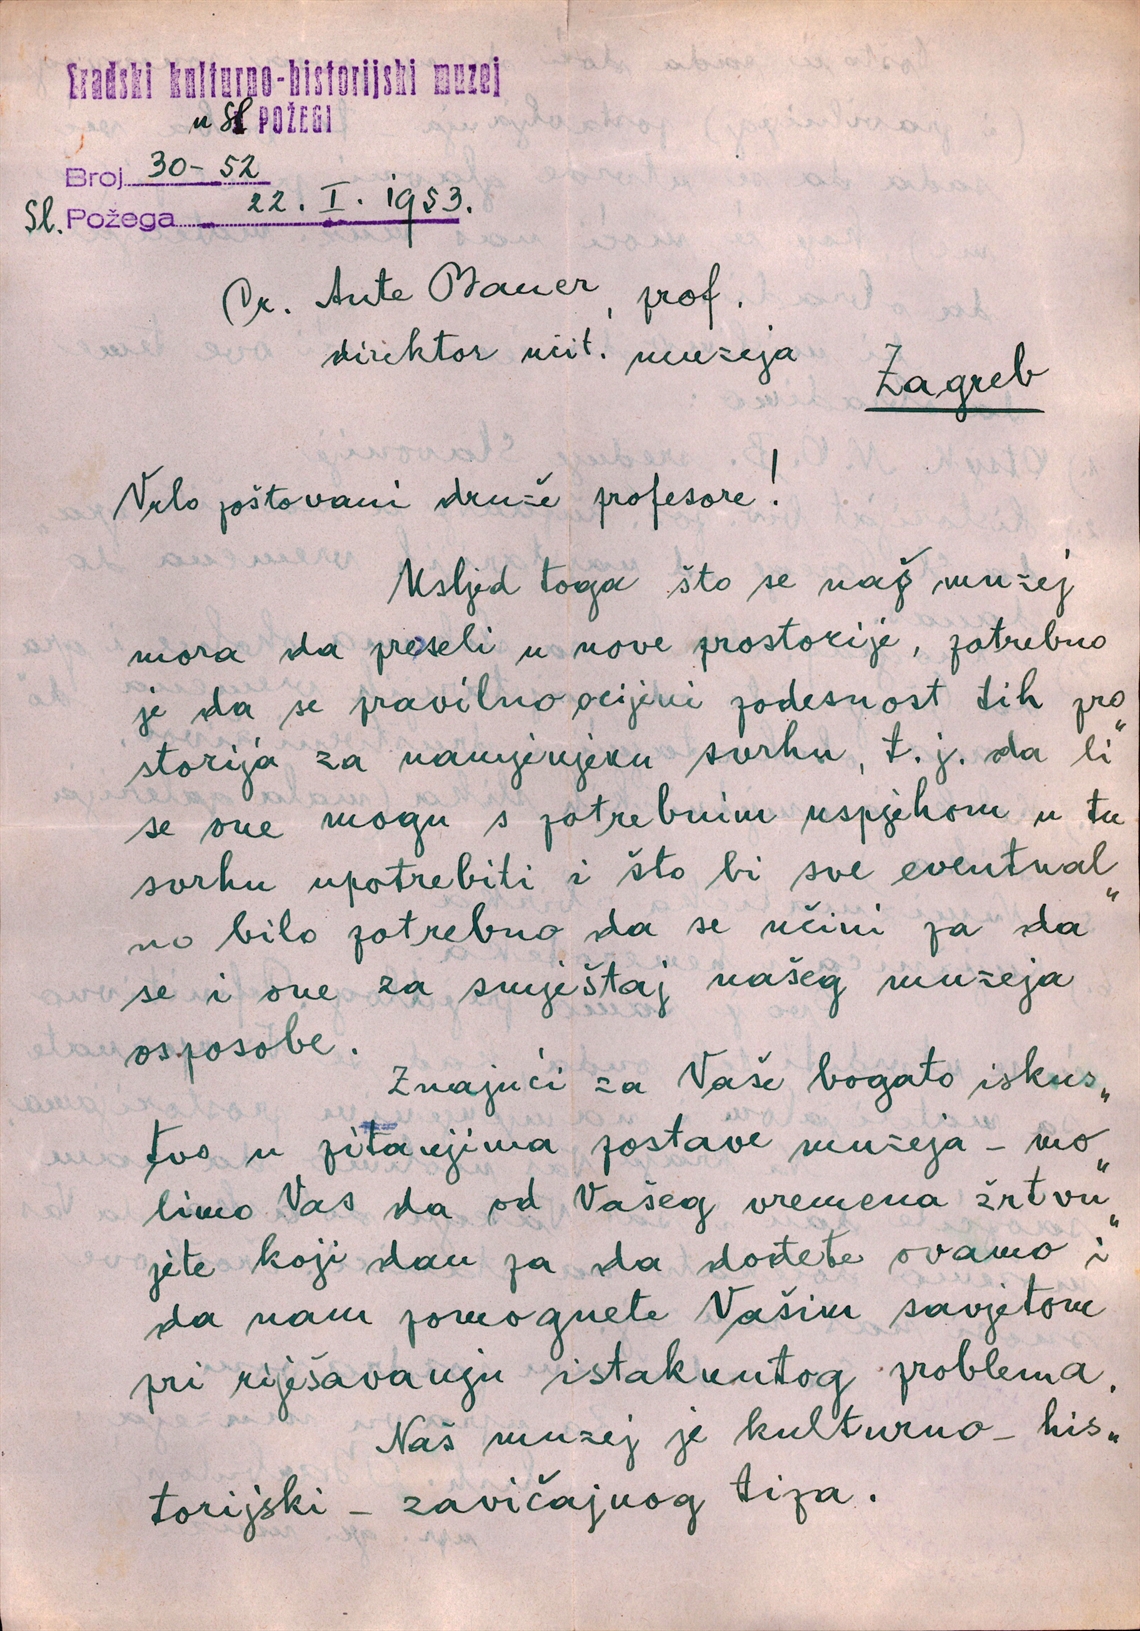 Gradski kulturno-historijski muzej
u Sl. POŽEGI
Broj 30-52
Sl. Požega 22. I. 1953.
Dr. Ante Bauer, prof.
direktor
muzeja
Zagreb
Vrlo poštovani druže profesore!
Usljed toga što se naš muzej
mora da preseli u nove prostorije, potrebno
je da se pravilno ocijeni podesnost tih pro„
storija za namjenjenu svrhu, t. j. da li
se one mogu s potrebnim uspjehom u tu
svrhu upotrebiti i što bi sve eventual„
no bilo potrebno da se učini pa da
se i one za smještaj našeg muzeja
osposobe.
Znajući za Vaše bogato iskus„
tvo u pitanjima postave muzeja – mo„
limo Vas da od Vašeg vremena žrtvu„
jete koji dan pa da dođete ovamo i
da nam pomognete Vašim savjetom
pri riješavanju istaknutog problema.
Naš muzej je kulturno – his„
torijski – zavičajnog tipa.